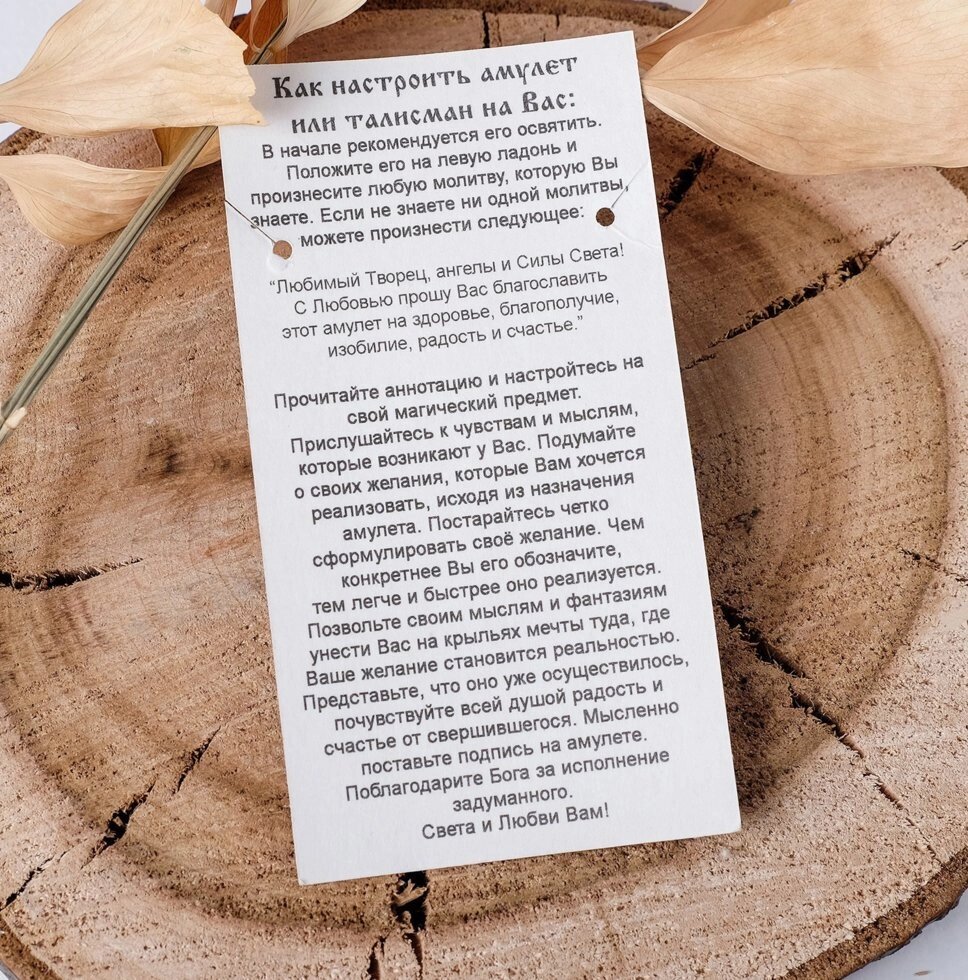 Как настроить амулет
или талисман на Вас:
В начале рекомендуется его освятить.
Положите его на левую ладонь и
произнесите любую молитву, которую Вы
знаете. Если не знаете ни одной молитвы,
можете произнести следующее:
“Любимый Творец, ангелы и Силы Света!
С Любовью прошу Вас благославить
этот амулет на здоровье, благополучие,
изобилие, радость и счастье.”
Прочитайте аннотацию и настройтесь на
свой магический предмет.
Прислушайтесь к чувствам и мыслям,
которые возникают у Вас. Подумайте
о своих желания, которые Вам хочется
реализовать, исходя из назначения
амулета. Постарайтесь четко
сформулировать своё желание. Чем
конкретнее Вы его обозначите,
тем легче и быстрее оно реализуется.
Позвольте своим мыслям и фантазиям
унести Вас на крыльях мечты туда, где
Ваше желание становится реальностью.
Представьте, что оно уже осуществилось,
почувствуйте всей душой радость и
счастье от свершившегося. Мысленно
поставьте подпись на амулете.
Поблагодарите Бога за исполнение
задуманного.
Света и Любви Вам!